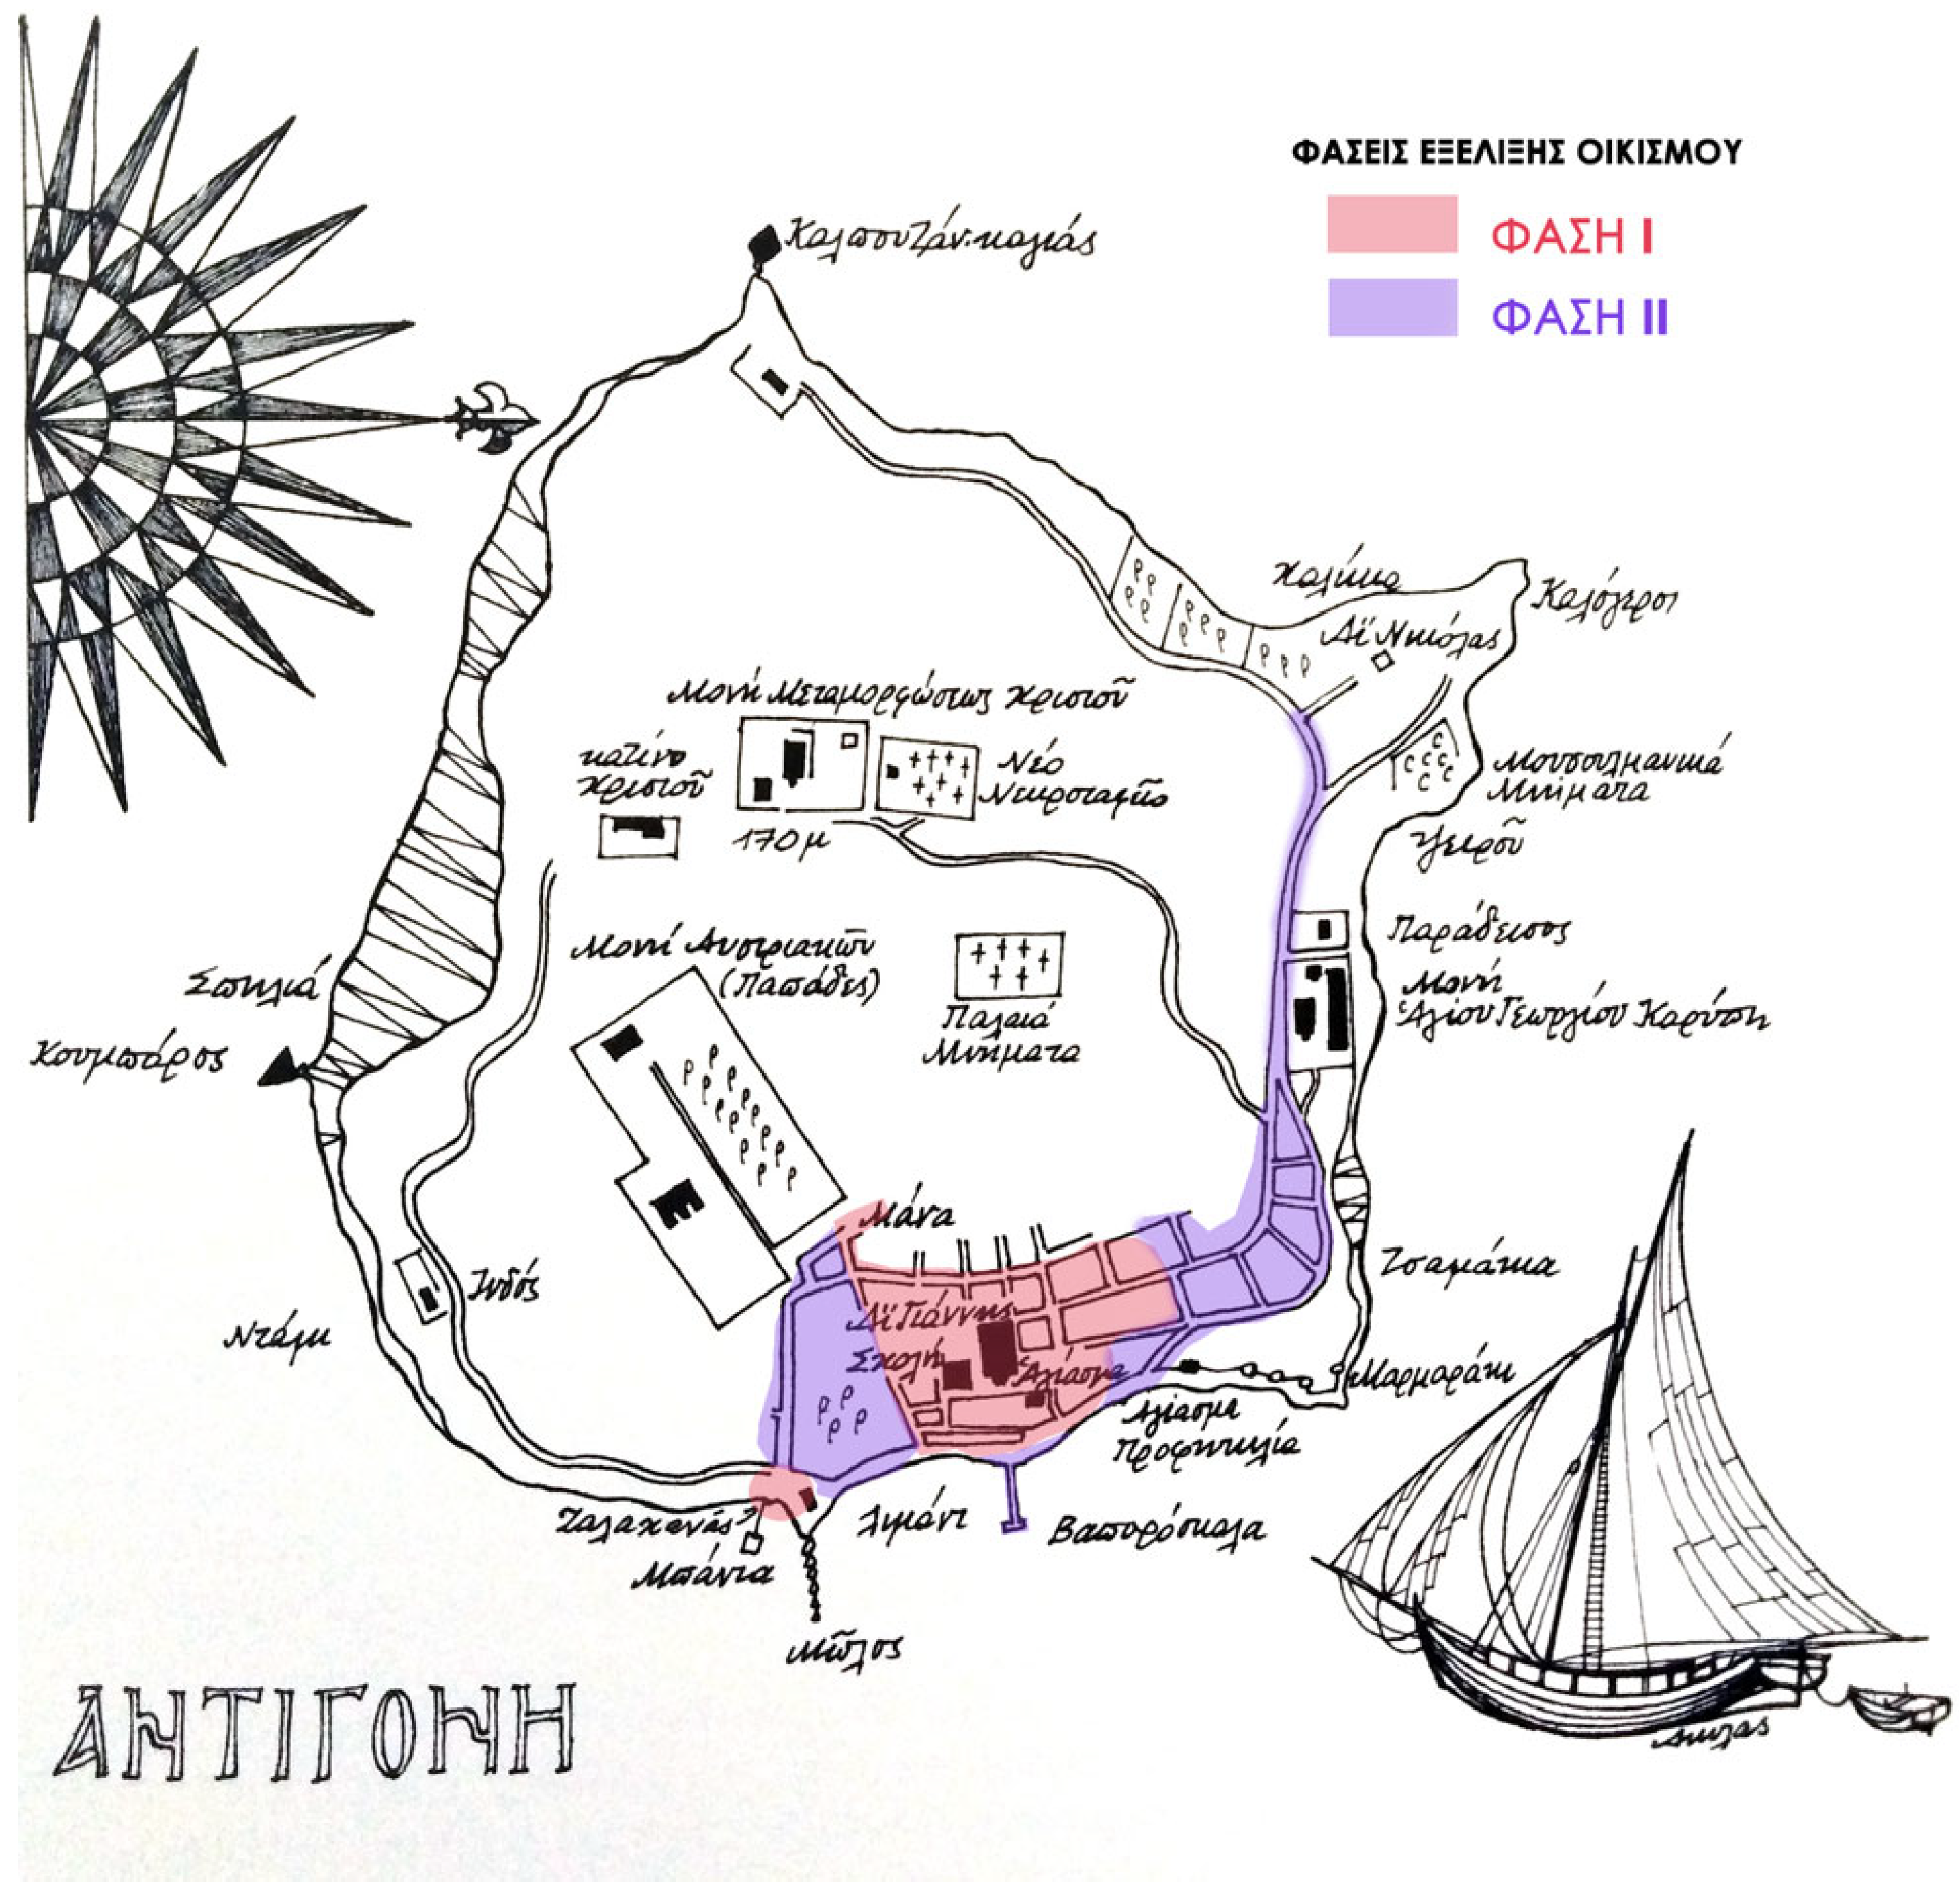 ΦΑΣΕΙΣ ΕΞΕΛΙΞΗΣ ΟΙΚΙΣΜΟΥ
ΦΑΣΗ I
ΦΑΣΗ II
Καλπουζάν·καγιάς
Χαλίκια
Καλόγεροι
Αϊ Νικόλας
Μονή Μεταμορφώσεως Χριστοῦ
καζίνο
Χριστοῦ
Νέο
Νεκροταφεῖο
170 μ
Μουσουλμανικά
Μνήματα
Ψειροῦ
Παράδεισος
Μονή
Ἁγίου Γεωργίου Καρύπη
Μονή Αυστριακῶν
(Παπάδες)
Παλαιά
Μνήματα
Σπηλιά
Κουμπάρος
Μάνα
Τσαμάκια
Ἰνδός
Ντάλμ
Αϊ Γιάννης
Σχολή
Ἁγίασμα
Μαρμαράκι
Αγίασμα
Προφητηλία
Ταλαχανάς
Μπάνια
Λιμάνι
Βαπορόσκαλα
Μῶλος
ΑΝΤΙΓΟΝΗ